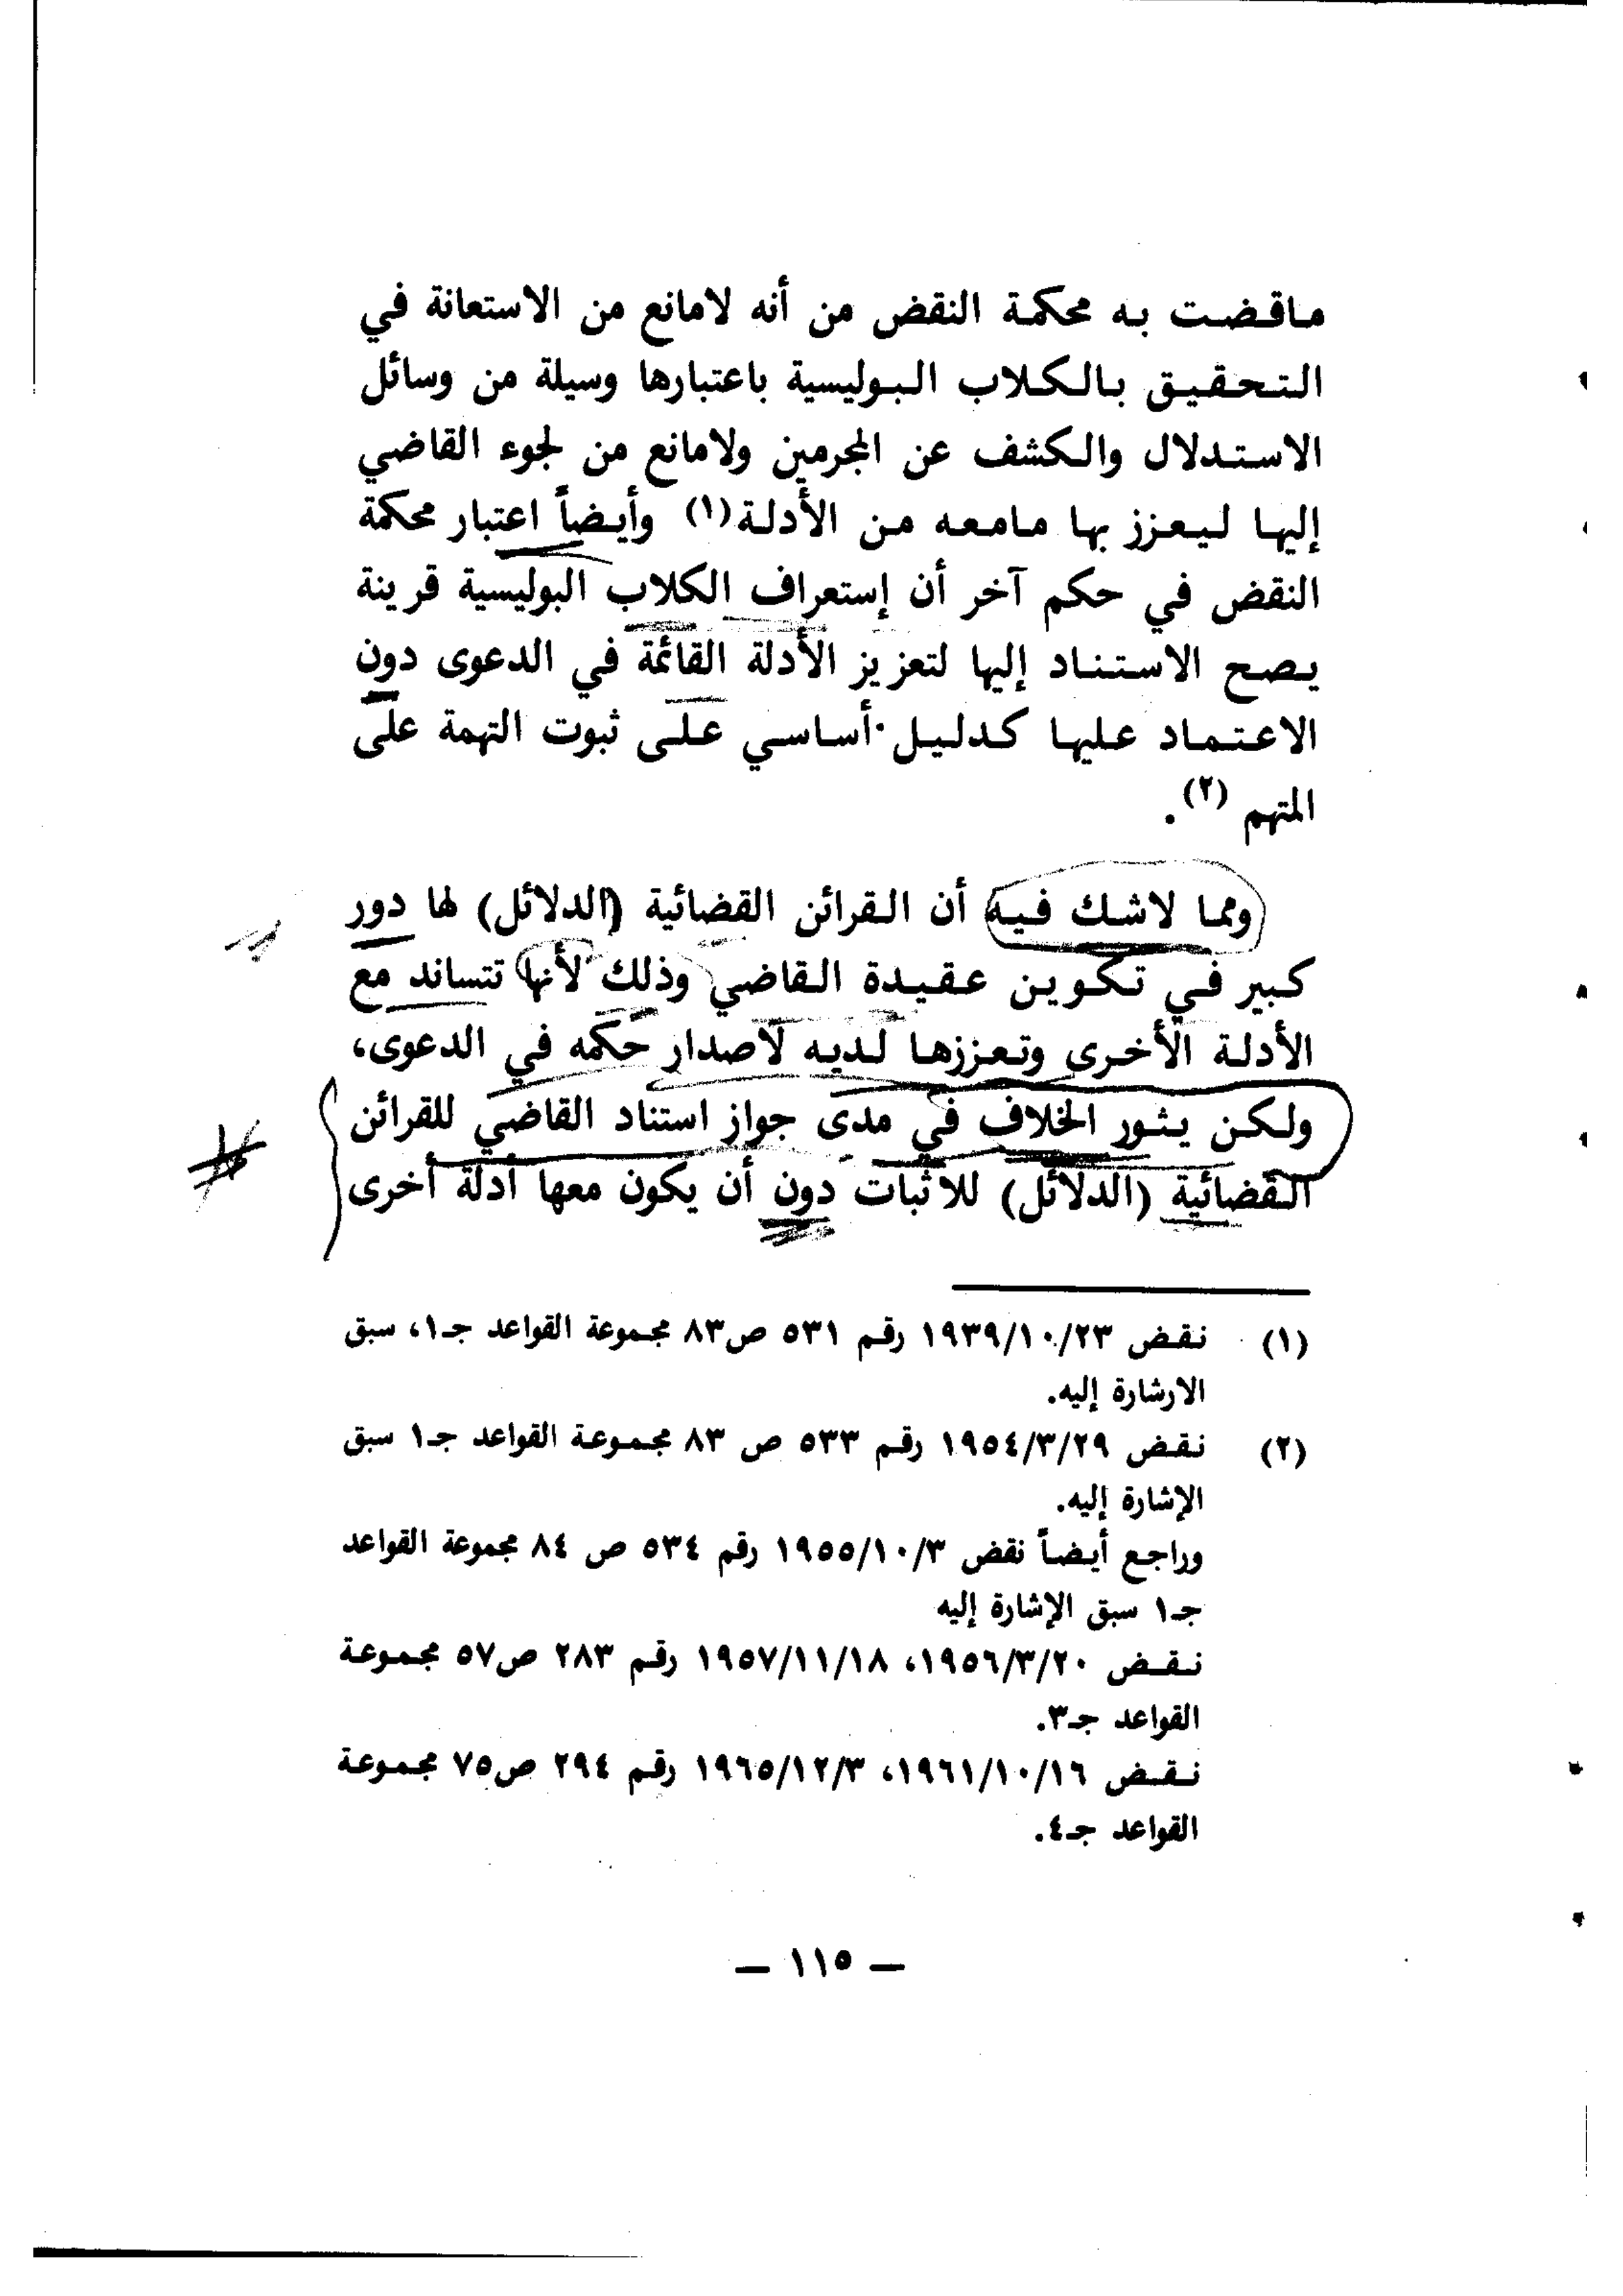 ماقضت به محكمة النقض من أنه لامانع من الاستعانة في
التحقيق بالكلاب البوليسية باعتبارها وسيلة من وسائل
الاستدلال والكشف عن المجرمين ولامانع من لجوء القاضي
إليها ليعزز بها مامعه من الأدلة(١) وأيضاً اعتبار محكمة
النقض في حكم آخر أن إستعراف الكلاب البوليسية قرينة
يصح الاستناد إليها لتعزيز الأدلة القائمة في الدعوى دون
الاعتماد عليها كدليل أساسي على ثبوت التهمة على
المتهم (٢).
ومما لاشك فيه أن القرائن القضائية (الدلائل) لها دور
كبير في تكوين عقيدة القاضي وذلك لأنها تتساند مع
الأدلة الأخرى وتعززها لديه لاصدار حكمه في الدعوى،
ولكن يثور الخلاف في مدى جواز استناد القاضي للقرائن
القضائية (الدلائل) للاثبات دون أن يكون معها أدلة أخرى
(١) نقض ١٩٣٩/١٠/٢٣ رقم ٥٣١ ص٨٣ مجموعة القواعد جـ١، سبق
الارشارة إليه.
(٢) نقض ١٩٥٤/٣/٢٩ رقم ٥٣٣ ص ٨٣ مجموعة القواعد جـ١ سبق
الإشارة إليه.
وراجع أيضاً نقض ١٩٥٥/١٠/٣ رقم ٥٣٤ ص ٨٤ مجموعة القواعد
جـ١ سبق الإشارة إليه
نقض ١٩٥٦/٣/٢٠، ١٩٥٧/١١/١٨ رقم ٢٨٣ ص٥٧ مجموعة
القواعد جـ٣.
نقض ١٩٦١/١٠/١٦، ١٩٦٥/١٢/٣ رقم ٢٩٤ ص٧٥ مجموعة
القواعد جـ٤.
— ١١٥ —